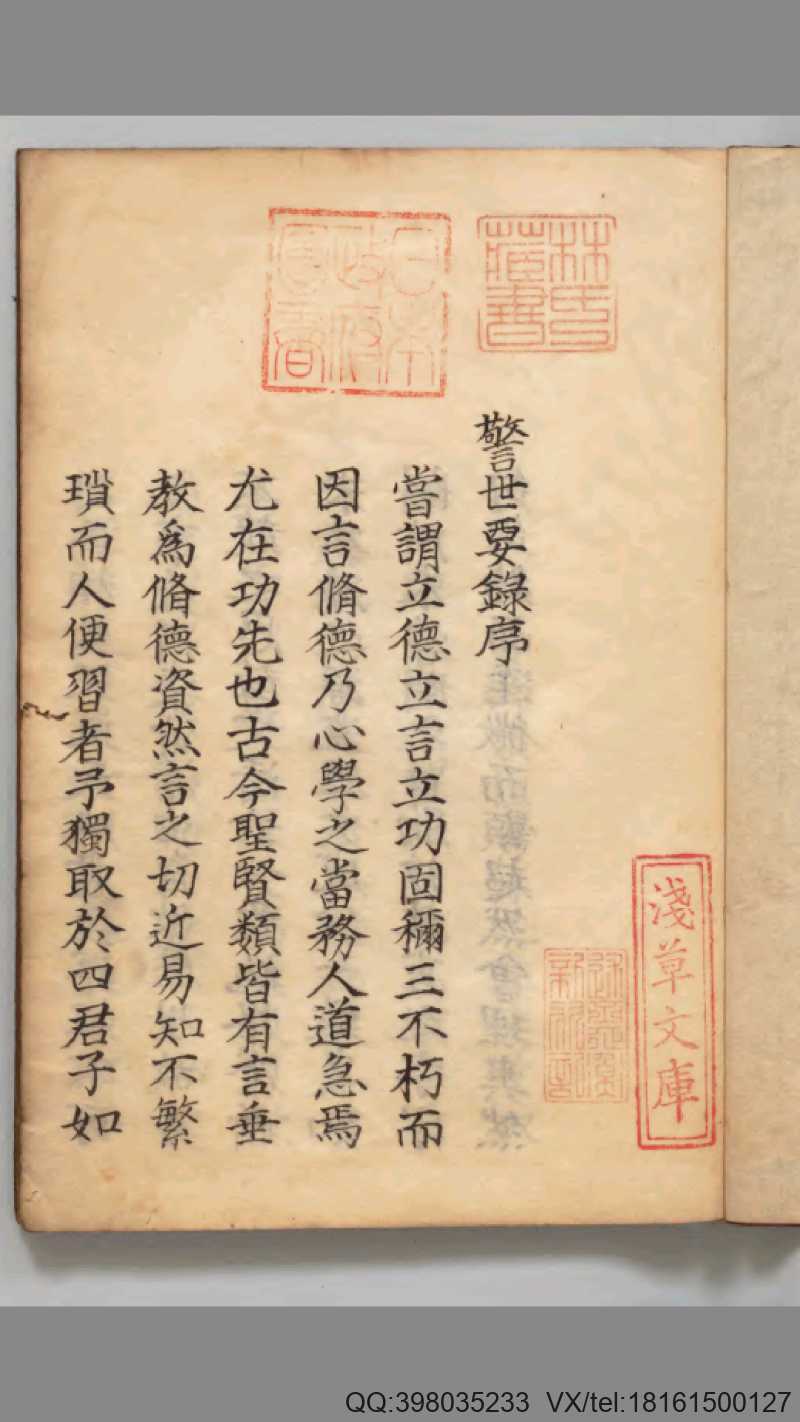 警世要錄序
嘗謂立德立言立功固稱三不朽而
因言脩德乃心學之當務人道急焉
尤在功先也古今聖賢類皆有言垂
教為脩德資然言之切近易知不繁
瑣而人便習者予獨取於四君子如
林氏藏書
日本政府圖書
淺草文庫
QQ:398035233 VX/tel:18161500127